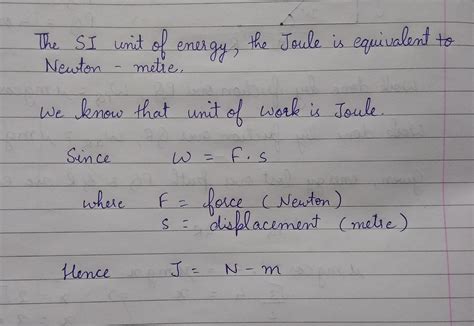 The SI unit of energy, the Joule is equivalent to
Newton - metre.
We know that unit of work is Joule.
Since W = F . s
where F = force (Newton)
s = displacement (metre)
Hence J = N - m